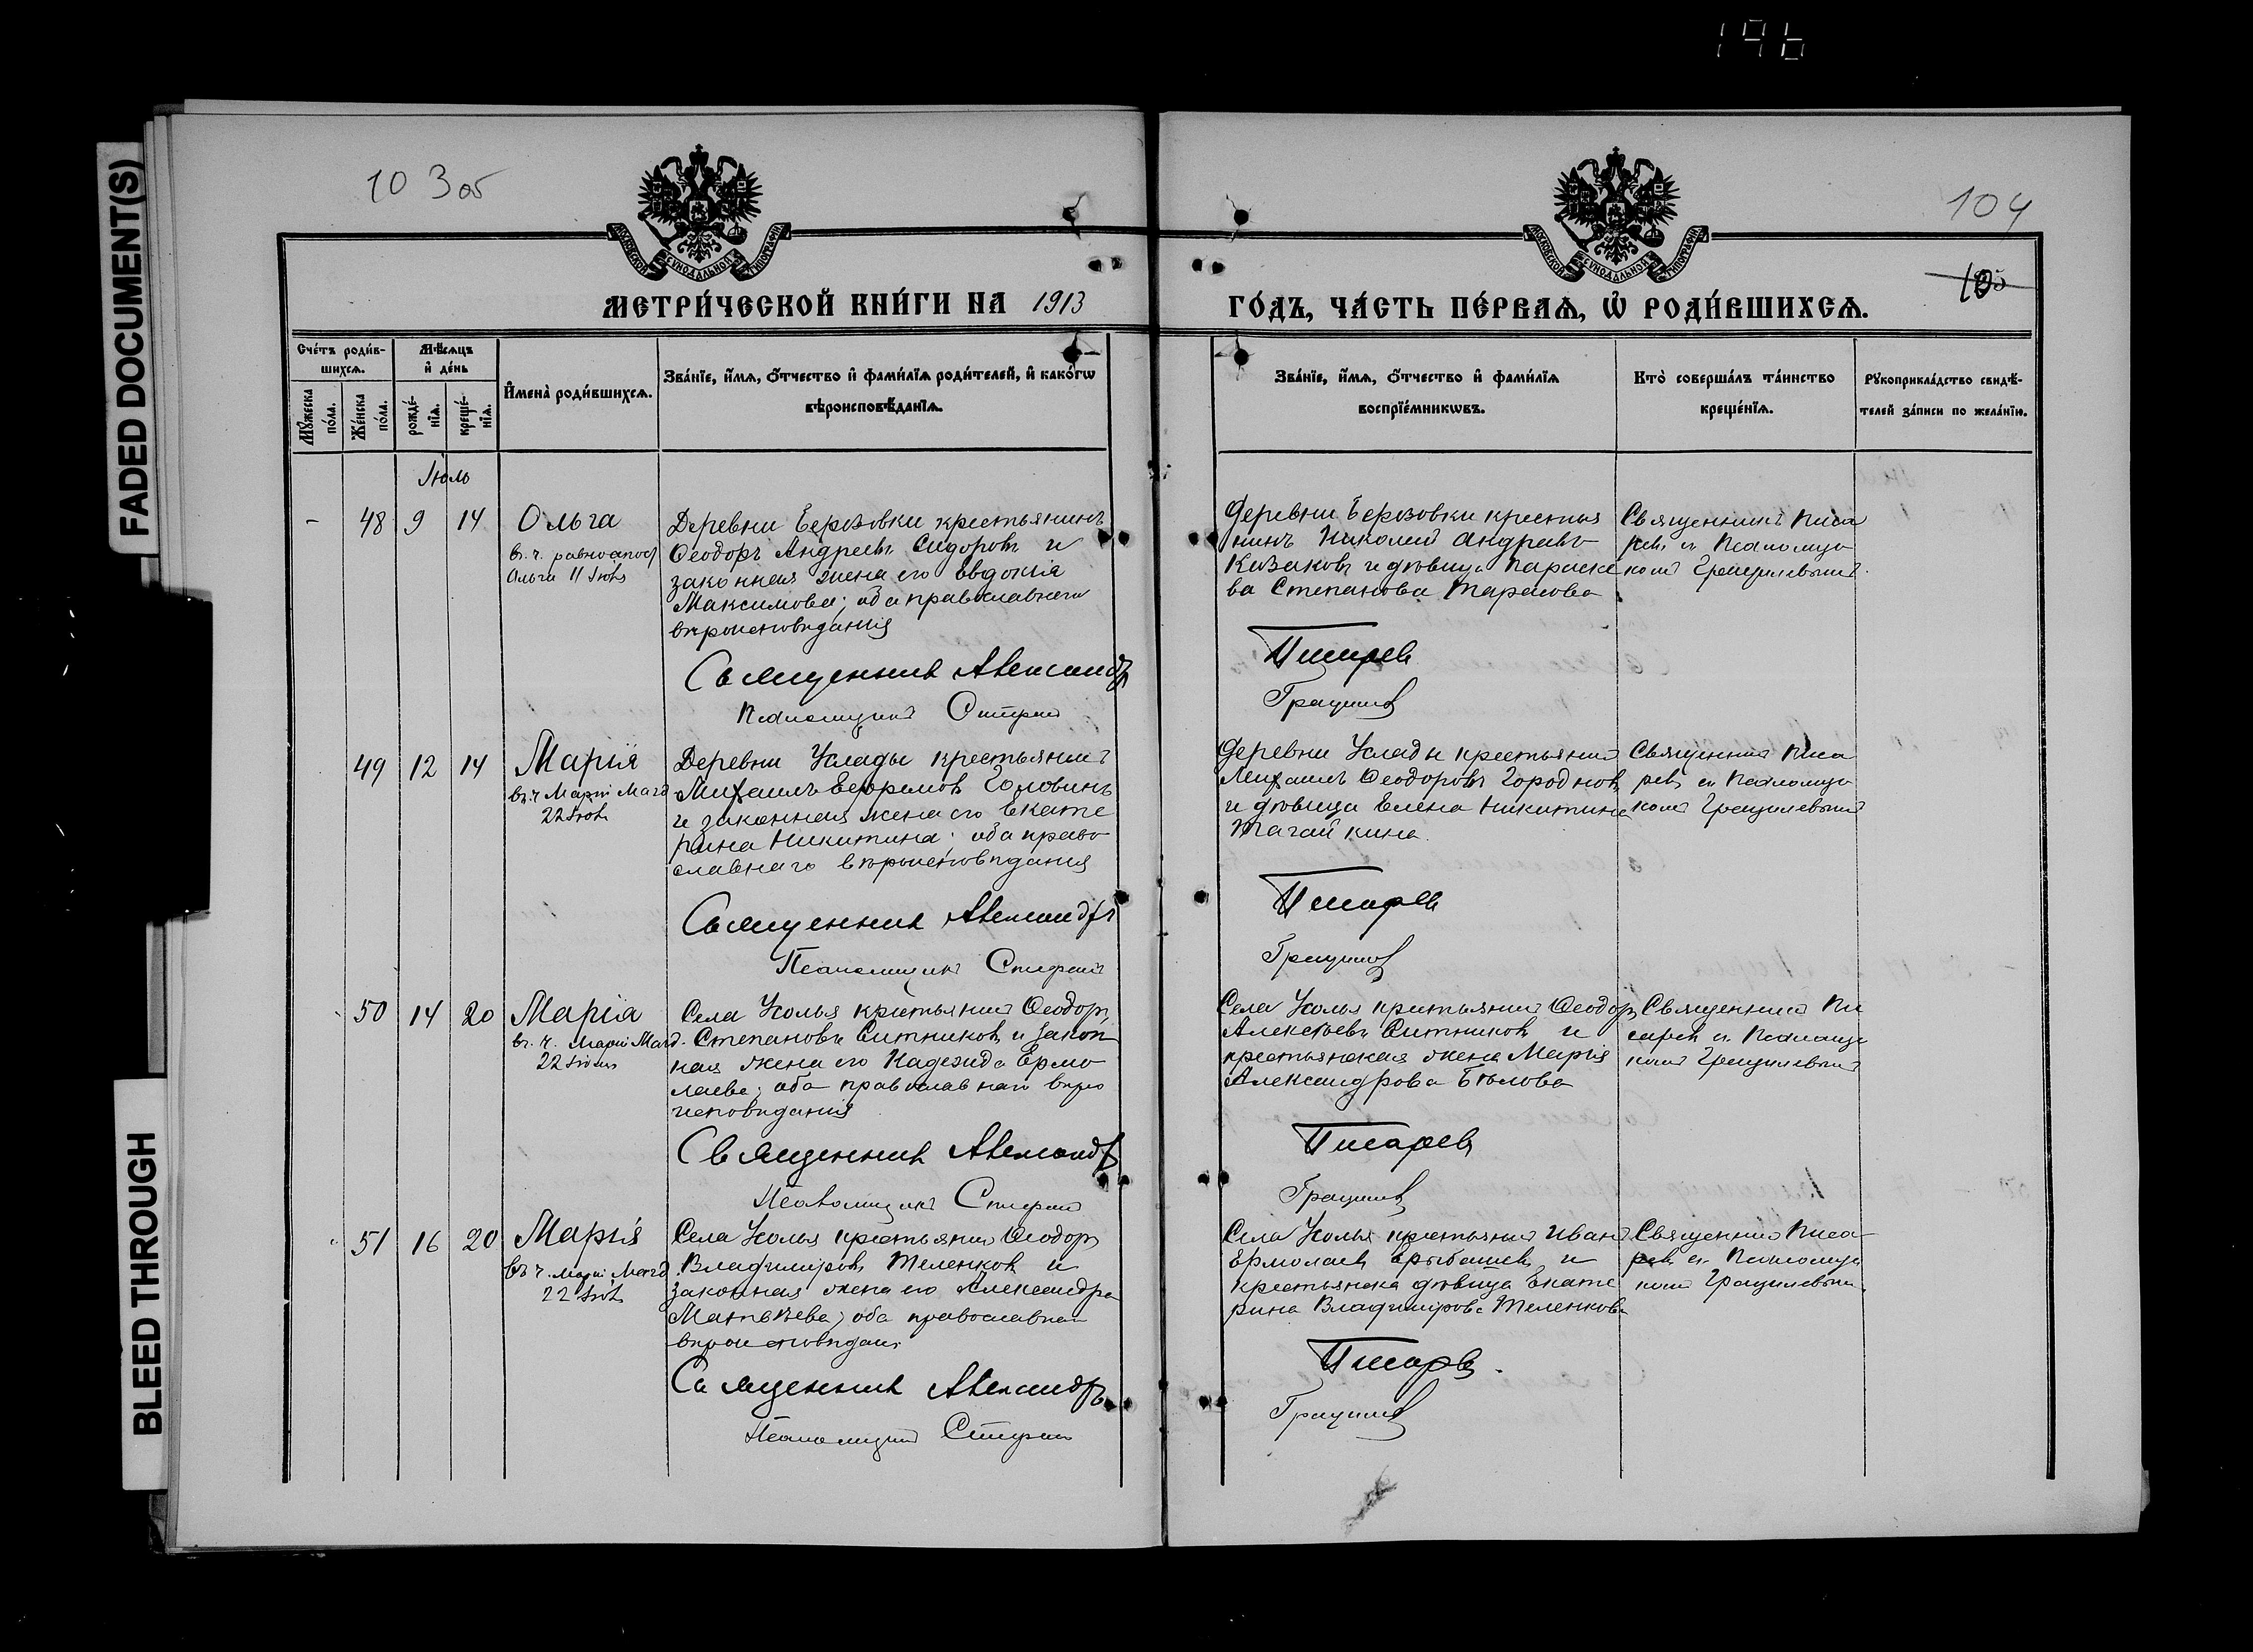 196
FADED DOCUMENT(S)
BLEED THROUGH
103об
104
105
МОСКОВСКОЙ СѴНОДАЛЬНОЙ ТИПОГРАФІИ
МОСКОВСКОЙ СѴНОДАЛЬНОЙ ТИПОГРАФІИ
МЕТРИ́ЧЕСКОЙ КНИ́ГИ НА 1913
ГО́ДЪ, ЧА́СТЬ ПЕ́РВАѦ, Ѽ РОДИ́ВШИХСѦ.
Сче́тъ роди́в-
шихсѧ.
Мꙋ́жеска по́ла.
Же́нска по́ла.
Мѣ́сѧцъ
и҆ де́нь
рожде́-
нїѧ.
креще́-
нїѧ.
И҆мена̀ роди́вшихсѧ.
Зва́нїе, и҆́мѧ, ѻ҆́тчество и҆ фами́лїѧ роди́телей, и҆ како́гѡ
вѣроисповѣ́данїѧ.
Зва́нїе, и҆́мѧ, ѻ҆́тчество и҆ фами́лїѧ
воспрїе́мникѡвъ.
Кто̀ соверша́лъ та́инство
креще́нїѧ.
Рꙋкоприкла́дство свидѣ́-
телей за́писи по жела́нїю.
Іюль
- 48 9 14 Ольга
в. ч. равноапос
Ольги 11 Іюля
Деревни Березовки крестьянинъ
Ѳеодоръ Андреевъ Сидоровъ и
законная жена его Евдокія
Максимова; оба православнаго
вѣроисповѣданія
Священник Александр
Псаломщикъ Стефан
Деревни Березовки крестья
нинъ Николай Андреевъ
Казаковъ и дѣвица Параске
ва Степанова Тарасова
Писарев
Грацилев
Священникъ Писа
ревъ съ Псаломщи
комъ Грацилевымъ
49 12 14 Марія
въ ч. Маріи Магд
22 Іюля
Деревни Услады крестьянинъ
Михаилъ Ефремовъ Головинъ
и законная жена его Екате
рина Никитина; оба право
славнаго вѣроисповѣданія
Священник Александръ
Псаломщикъ Стефанъ
Деревни Услады крестьянин
Михаилъ Ѳеодоровъ Городновъ
и дѣвица Елена Никитина
Тагайкина
Писарев
Грацилев
Священник Писа
ревъ съ Псаломщи
комъ Грацилевымъ
50 14 20 Марія
въ ч. Маріи Магд.
22 Іюля
Села Усолья крестьянин Ѳеодоръ
Степановъ Ситниковъ и закон
ная жена его Надежда Ермо
лаева; оба православнаго вѣро
исповѣданія
Священник Александр
Псаломщикъ Стефан
Села Усолья крестьянин Ѳеодоръ
Алексѣевъ Ситников и
крестьянская жена Марія
Александрова Бѣлова
Писаревъ
Грацилев
Священник Пи
сарев съ Псаломщи
комъ Грацилевымъ
51 16 20 Марія
въ ч. Маріи Магд.
22 Іюля
Села Усолья крестьянин Ѳеодоръ
Владиміровъ Теленков и
законная жена его Александра
Матвѣева; оба православнаго
вѣроисповѣдан.
Священник Александръ
Псаломщик Стефан
Села Усолья крестьянин Иван
Ермолаев и
крестьянска дѣвица Екате
рина Владимірова Теленкова
Писарев.
Грацилев
Священник Писа
рев съ Псаломщи
комъ Грацилевым.